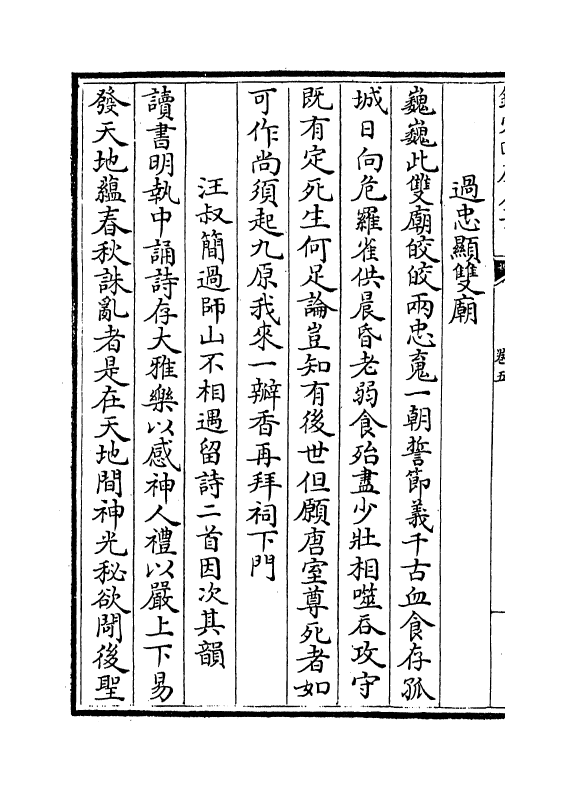 過忠顯雙廟
巍巍此雙廟皎皎兩忠䰟一朝誓節義千古血食存孤
城日向危羅雀供晨昏老弱食殆盡少壯相噬吞攻守
既有定死生何足論豈知有後世但願唐室尊死者如
可作尚須起九原我來一瓣香再拜祠下門
汪叔簡過師山不相遇留詩二首因次其韻
讀書明執中誦詩存大雅樂以感神人禮以嚴上下易
發天地蘊春秋誅亂者是在天地間神光秘欲閟後聖
卷五